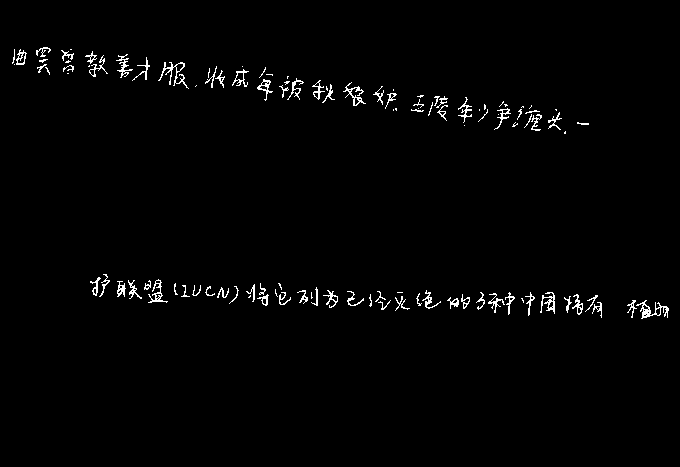 曲罢曾教善才服,妆成每被秋娘妒.五陵年少争缠头.一
护联盟(IUCN)将它列为已经灭绝的3种中国特有植物